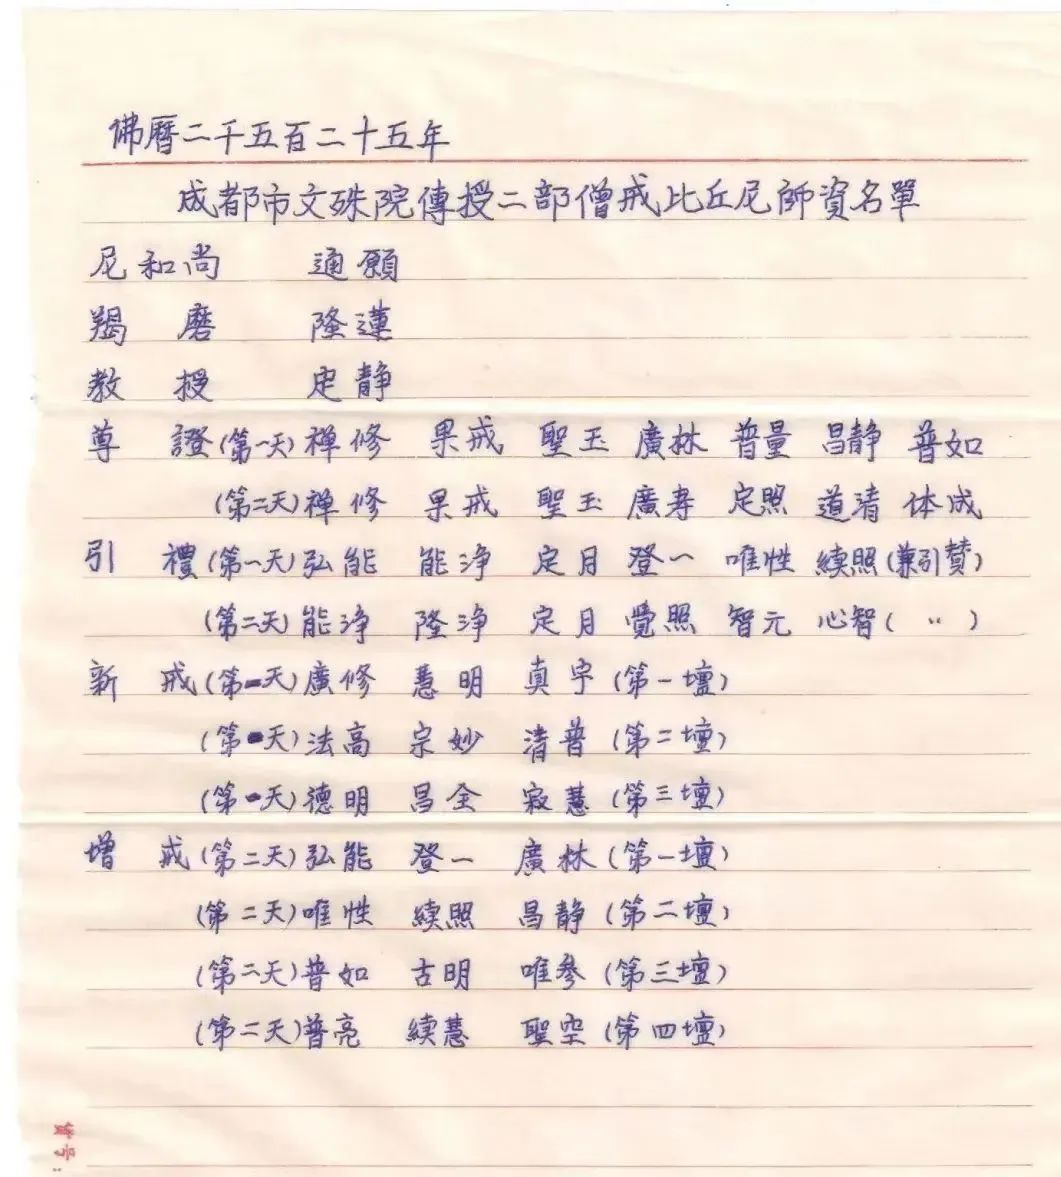 佛曆二千五百二十五年
成都市文殊院傳授二部僧戒比丘尼師資名單
尼和尚 通願
羯磨 隆蓮
教授 定静
尊證(第一天)禅修 果戒 聖玉 廣林 普量 昌静 普如
(第二天)禅修 果戒 聖玉 廣寿 定照 道清 体成
引禮(第一天)弘能 能浄 定月 登一 唯性 續照(兼引赞)
(第二天)能浄 隆浄 定月 覺照 智元 心智( 〃 )
新戒(第一天)廣修 慧明 真宇(第一壇)
(第一天)法高 宗妙 清普(第二壇)
(第一天)德明 昌全 寂慧(第三壇)
增戒(第二天)弘能 登一 廣林(第一壇)
(第二天)唯性 續照 昌静(第二壇)
(第二天)普如 古明 唯參(第三壇)
(第二天)普亮 續慧 聖空(第四壇)
货号: